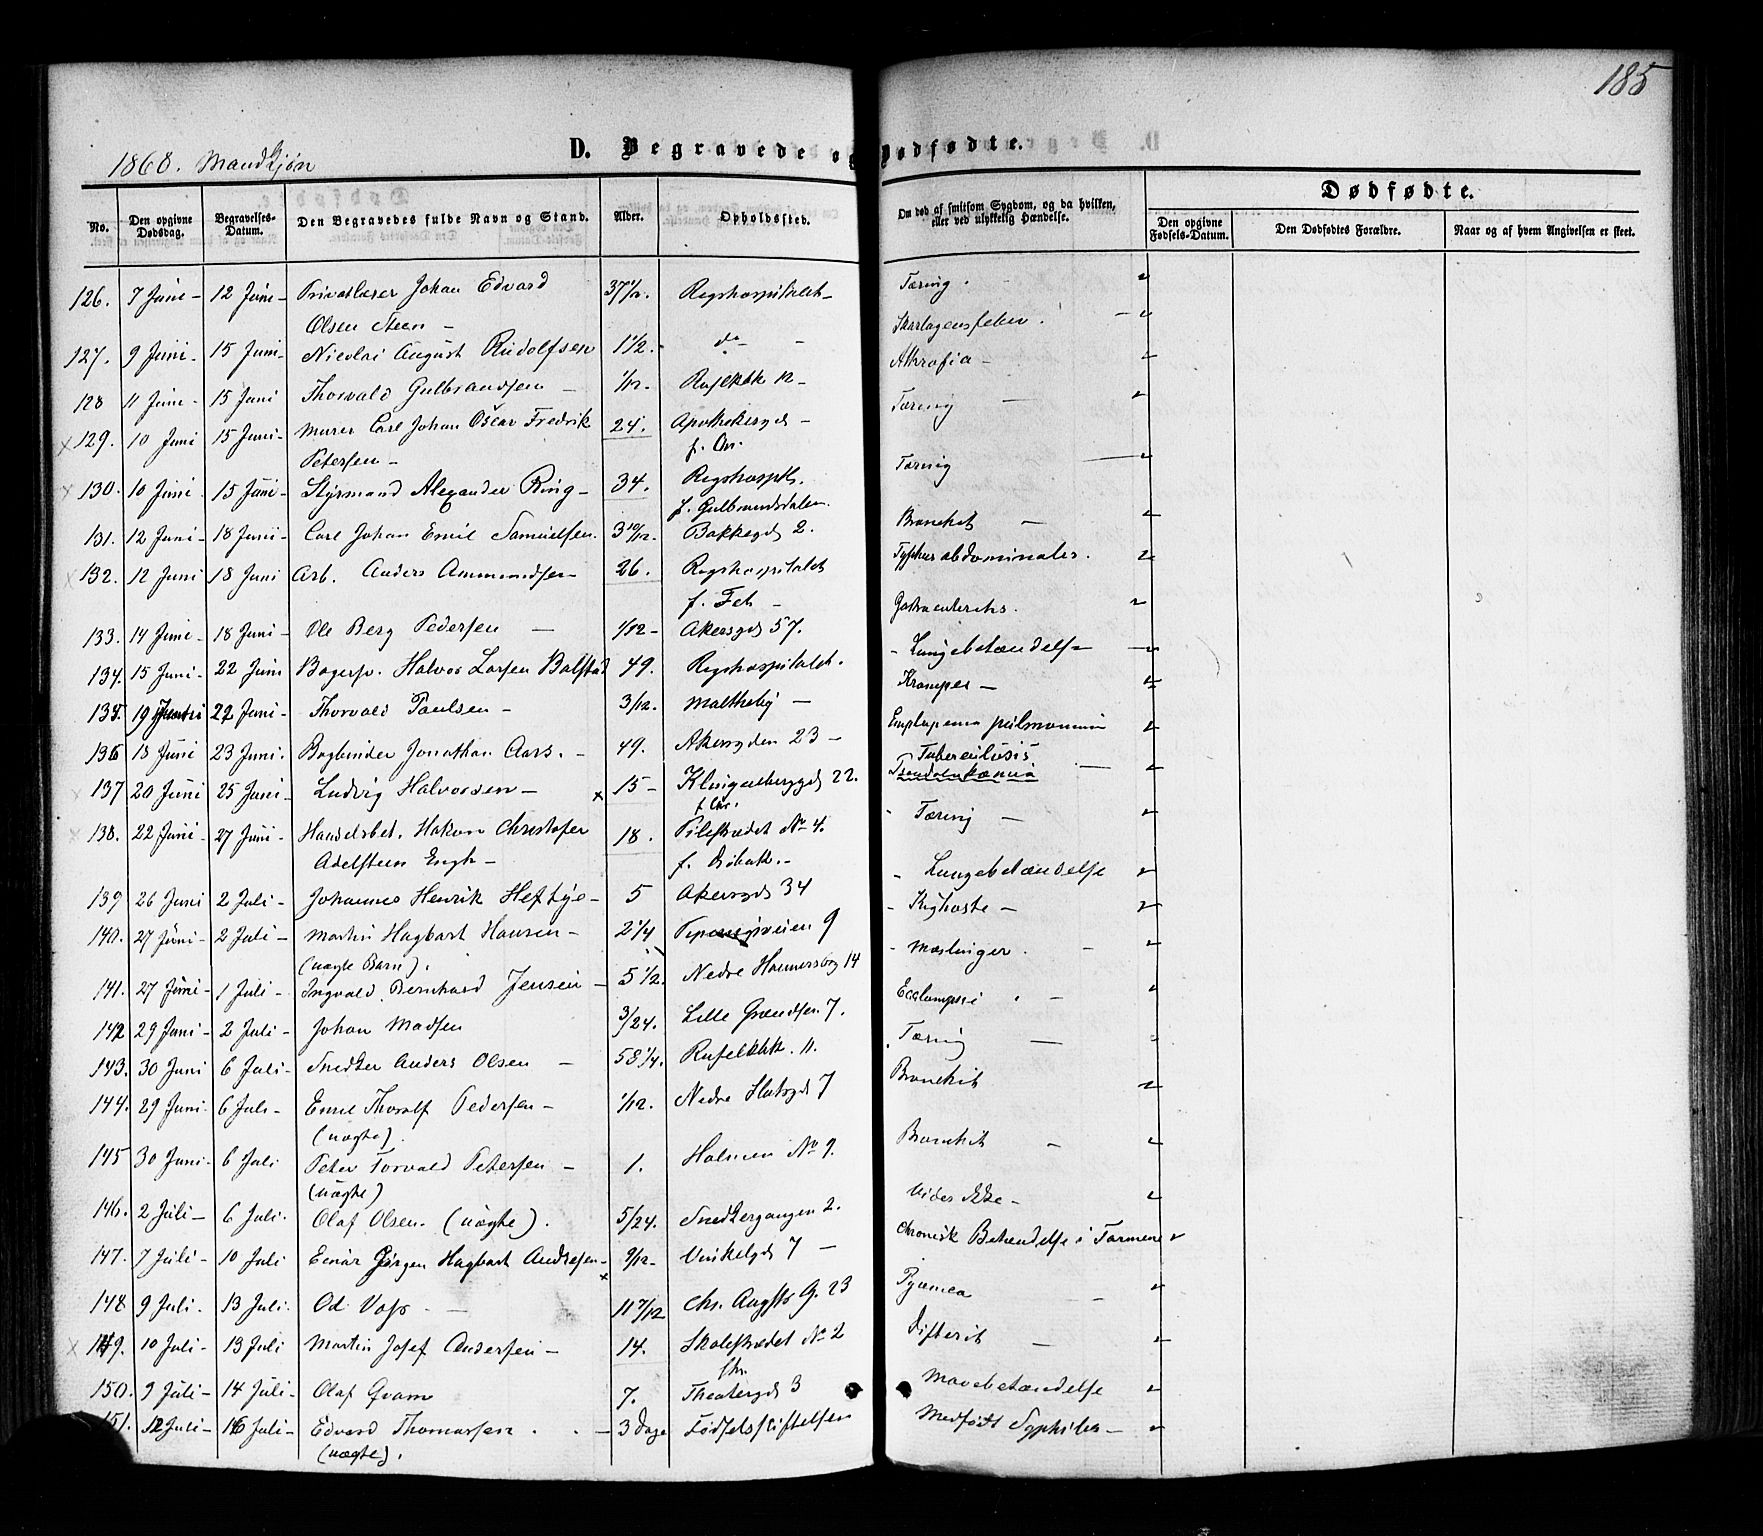 185
1868. Mandkjøn
D. Begravede og Dødfødte.
No. | Den opgivne Dødsdag. | Begravelses-Datum. | Den Begravedes fulde Navn og Stand. | Alder. | Opholdssted. | Om død af smitsom Sygdom, og da hvilken, eller ved ulykkelig Hændelse. | Dødfødte. | Den opgivne Fødsels-Datum. | Den Dødfødtes Forældre. | Naar og af hvem Angivelsen er skeet.
126. 7 Juni - 12 Juni - Privatlærer Johan Edvard 37 1/2. Rigshospitalet - Tæring.
Olsen Steen -
127. 9 Juni - 15 Juni - Nicolai August Rudolfsen 1 1/2. do - Skarlagensfeber.
128 11 Juni - 15 Juni Thorvald Gulbrandsen - 1/12. 12 - Athrofia -
× 129. 10 Juni 15 Juni - Murer Carl Johan Oscar Fredrik 24. Apothekergd - Tæring
Petersen - f. Chr.
× 130. 10 Juni 15 Juni - Styrmand Alexander Ring - 34. Rigshosptl. Tæring
f. Gulbrandsdalen.
131. 12 Juni - 18 Juni - Carl Johan Emil Samuelsen. 3 10/12. Bakkegd 2. Bronchit -
× 132. 12 Juni 18 Juni Arb. Anders Ammundsen - 26. Rigshospitalet Typhus abdominales.
f. Fet -
133. 14 Juni - 18 Juni - Ole Berg Pedersen - 1/12 - Akersgd 57. Gastroenterits.
134. 15 Juni - 22 Juni Bagersv. Halvor Larsen Balstad 49. Rigshospitalet. - Lungebetændelse
135. 19 Juni 22 Juni - Thorvald Paulsen - 3/12. Maltheby - Kramper -
136 18 Juni 23 Juni. Bogbinder Jonathan Aars. - 49. Akersgden 23 - pulmonum
137 20 Juni 25 Juni - Ludvig Halvorsen - × 15 - Klingenberggd 22. Tuberculosis
f. Chr.
× 138. 22 Juni - 27 Juni - Handelsbet. Hakon Christofer 18. Pilestrædet No 4. - Tæring -
Adelsteen Engh - f. Drøbak. -
139 26 Juni 2 Juli - Johannes Henrik Heftye - 5 Akersgd 34 - Lungebetændelse
140. 27 Juni - 2 Juli - Martin Hagbart Hansen - 2 1/4 9 - Kighoste -
(uægte Barn).
141. 27 Juni - 1 Juli - Ingvald Bernhard Jensen - 5 1/2. Nedre 14 - Mæslinger. -
142 29 Juni - 2 Juli - Johan Madsen 3/24. Lille Grændsen 7. Ecclampsi -
143. 30 Juni 6 Juli - Snedker Anders Olsen - 58 1/4. 11. Tæring
144. 29 Juni. 6 Juli - Emil Thorolf Pedersen - 1/12. Nedre Slotsgd 7 Bronchit
(uægte).
145 30 Juni - 6 Juli Peter Torvald Petersen - 1. Holmen No 9. Bronchit -
(uægte)
146. 2 Juli - 6 Juli. Olaf Olsen. (uægte). 5/24. Snedkergangen 2. Vides Ikke -
147. 7 Juli - 10 Juli Einar Jørgen Hagbart Andresen - 9/12 - Vinkelgd 7 - Chronisk Betændelse i Tarmene
148 9 Juli - 13 Juli. Od. Voss - × 11 7/12 Chr. Augsts G. 23 Pyæmea
× 149. 10 Juli - 13 Juli Martin Josef Andersen - 14. Skolestrædet No 2 Difterit -
Chr.
150. 9 Juli - 14 Juli - Olaf Qvam 7. Theatergd 3 Mavebetændelse
151. 12 Juli - 16 Juli - Edvard Thomassen - 3 Dage Fødselsstiftelsen Medfødt Syphilis -
(uægte).